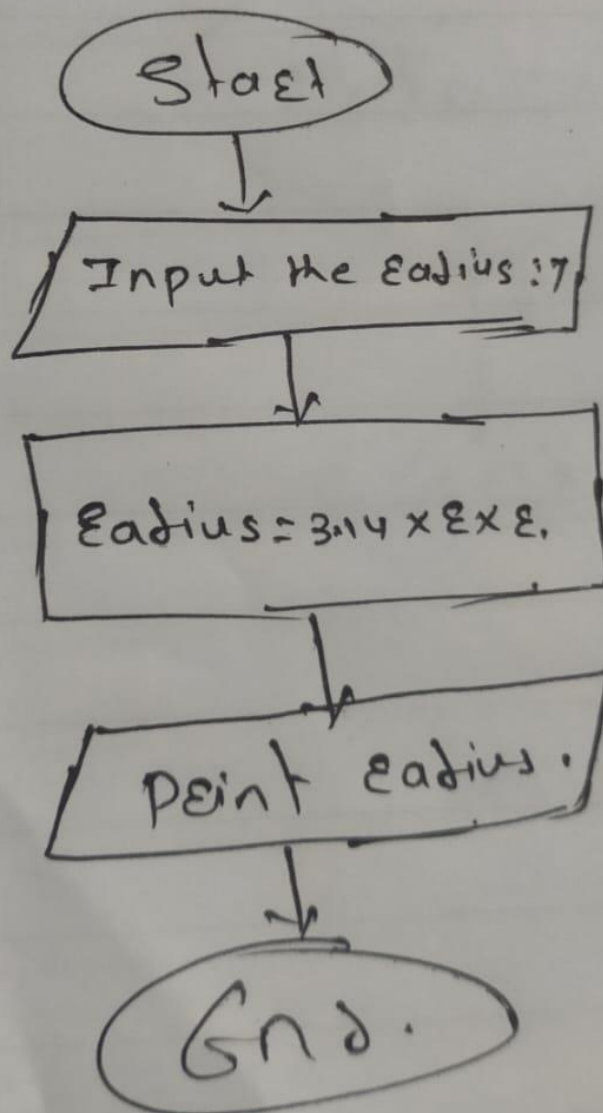 Start
Input the radius: 7
radius = 3.14 × r × r.
Print radius.
End.